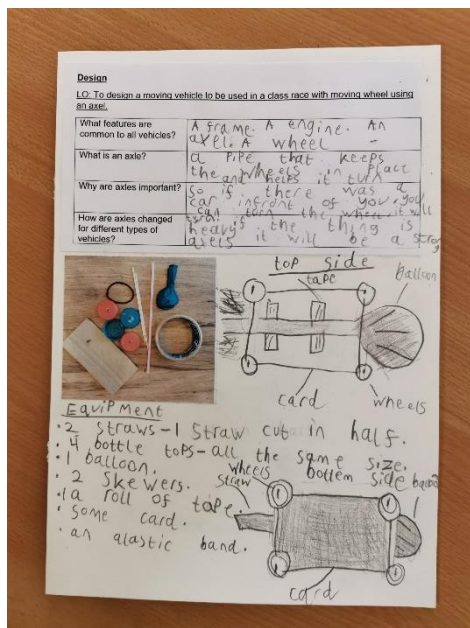 Design
LO: To design a moving vehicle to be used in a class race with moving wheel using
an axel.
What features are
common to all vehicles?
A frame. A engine. An
axel. A wheel
What is an axle?
a PiPe that keeps
the wheels in place
and helps it turn
Why are axles important?
so if there was a
car infront of you, you
can turn the wheel it will
turn.
How are axles changed
for different types of
vehicles?
heavy is the thing is
axels it will be a strong
top side
tape
balloon
card
wheels
EquiPment
• 2 straws-1 straw cut in half.
• 4 bottle tops-all the same size.
• 1 balloon.
• 2 skewers.
• 1a roll of tape.
• some card.
• an alastic band.
wheels
bottem side
straw
card